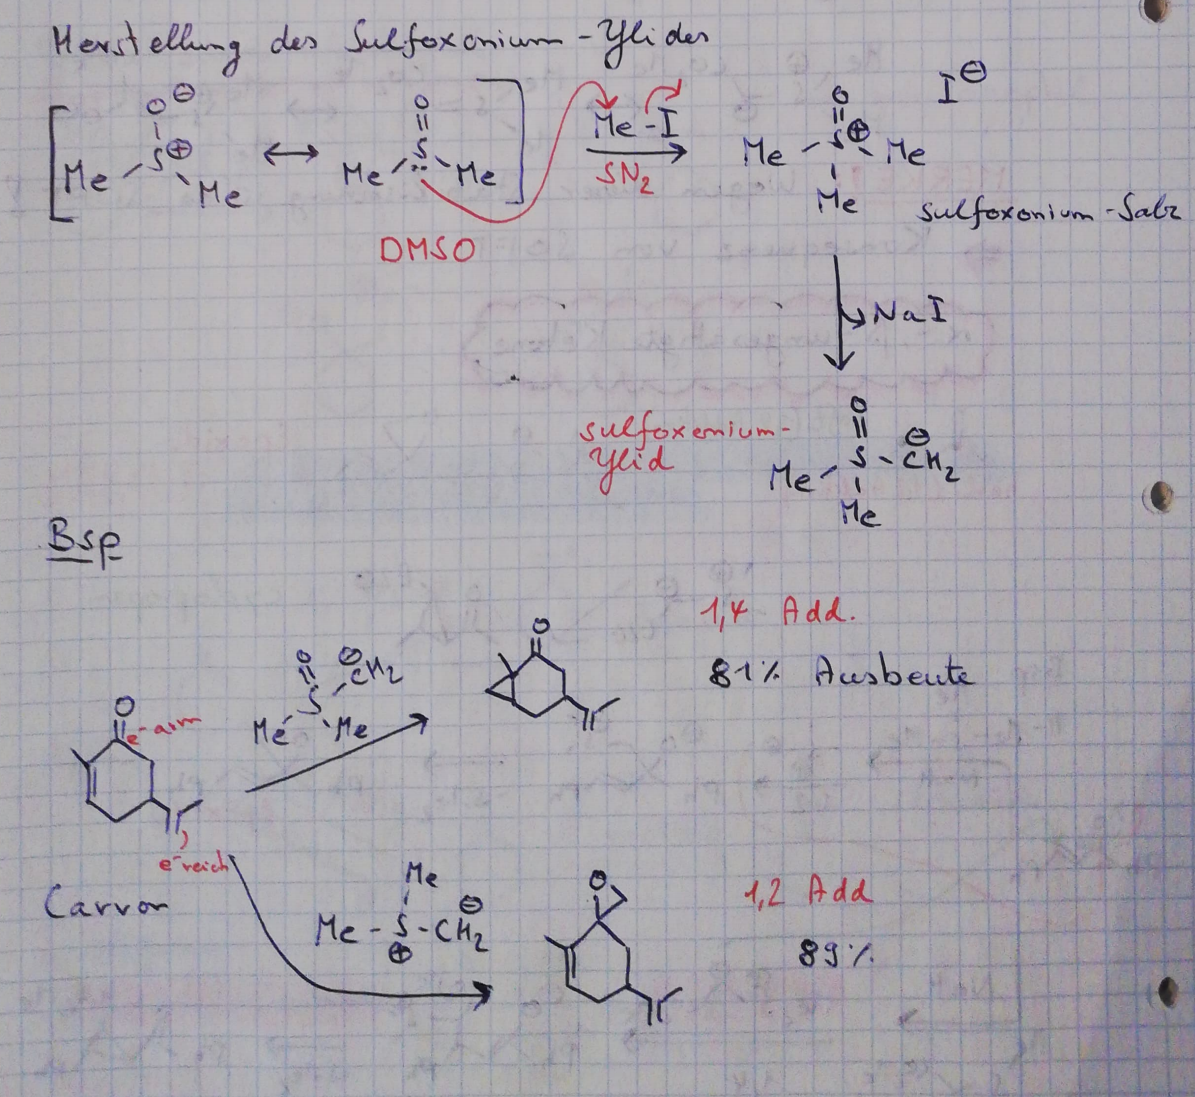 Herstellung des Sulfoxonium-Ylides
O⊖ O Me-I O I⊖
Me S⊕ Me ↔ Me S Me SN2 Me S⊕ Me
DMSO Me Sulfoxonium-Salz
NaI
sulfoxonium-
Ylid
O
Me S ⊖CH2
Me
Bsp
1,4 Add.
81% Ausbeute
O
O ⊖CH2
S
Me Me
O
e-arm
e-reich
Carvon
Me
Me-S-CH2
⊕ ⊖
O
1,2 Add
89%